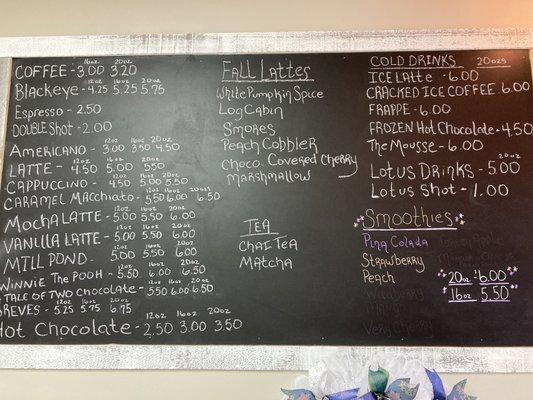 16oz 20oz
COFFEE - 3.00 3.20
12oz 16oz 20oz
Blackeye - 4.25 5.25 5.75
Espresso - 2.50
DOUBLE Shot - 2.00
12oz 16oz 20oz
AMERICANO - 3.00 3.50 4.50
12oz 16oz 20oz
LATTE - 4.50 5.00 5.50
12oz 16oz 20oz
CAPPUCCINO - 4.50 5.00 5.50
12oz 16oz 20oz
CARAMEL MACchiato - 5.50 6.00 6.50
12oz 16oz 20oz
MOCHA LATTE - 5.00 5.50 6.00
12oz 16oz 20oz
VANILLA LATTE - 5.00 5.50 6.00
12oz 16oz 20oz
MILL POND - 5.00 5.50 6.00
12oz 16oz 20oz
WINNIE THE POOH - 5.50 6.00 6.50
12oz 16oz 20oz
A TALE OF TWO CHOCOLATE - 5.50 6.00 6.50
12oz 16oz 20oz
BREVES - 5.25 5.75 6.75
12oz 16oz 20oz
Hot Chocolate - 2.50 3.00 3.50
FALL LATTES
White Pumpkin Spice
Log Cabin
S'mores
Peach Cobbler
Choco. Covered Cherry
Marshmallow
TEA
CHAI TEA
MATCHA
COLD DRINKS 20oz
ICE LAtte - 6.00
CRACKED ICE COFFEE 6.00
FRAPPE - 6.00
FROZEN Hot Chocolate - 4.50
The Mousse - 6.00
20oz
Lotus Drinks - 5.00
Lotus Shot - 1.00
Smoothies
Pina Colada
Strawberry
Peach
20oz $6.00
16oz 5.50